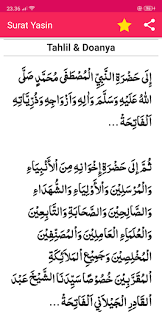 23.36
Surat Yasin
Tahlil & Doanya
إِلَى حَضْرَةِ النَّبِيِّ الْمُصْطَفَى مُحَمَّدٍ صَلَّى
اللهُ عَلَيْهِ وَسَلَّمَ وَاٰلِهِ وَاَزْوَاجِهِ وَذُرِّيَّاتِهِ
اَلْفَاتِحَةُ...
ثُمَّ إِلَى حَضْرَةِ إِخْوَانِهِ مِنَ الْأَنْبِيَاءِ
وَالْمُرْسَلِيْنَ وَالْأَوْلِيَاءِ وَالشُّهَدَاءِ
وَالصَّالِحِيْنَ وَالصَّحَابَةِ وَالتَّابِعِيْنَ
وَالْعُلَمَاءِ الْعَامِلِيْنَ وَالْمُصَنِّفِيْنَ
الْمُخْلِصِيْنَ وَجَمِيْعِ الْمَلَائِكَةِ
الْمُقَرَّبِيْنَ خُصُوْصًا سَيِّدِنَا الشَّيْخِ عَبْدِ
الْقَادِرِ الْجَيْلَانِي اَلْفَاتِحَةُ...